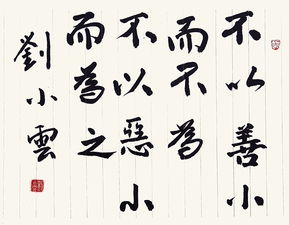 不以善小
而不為
不以惡小
而為之
劉小雲